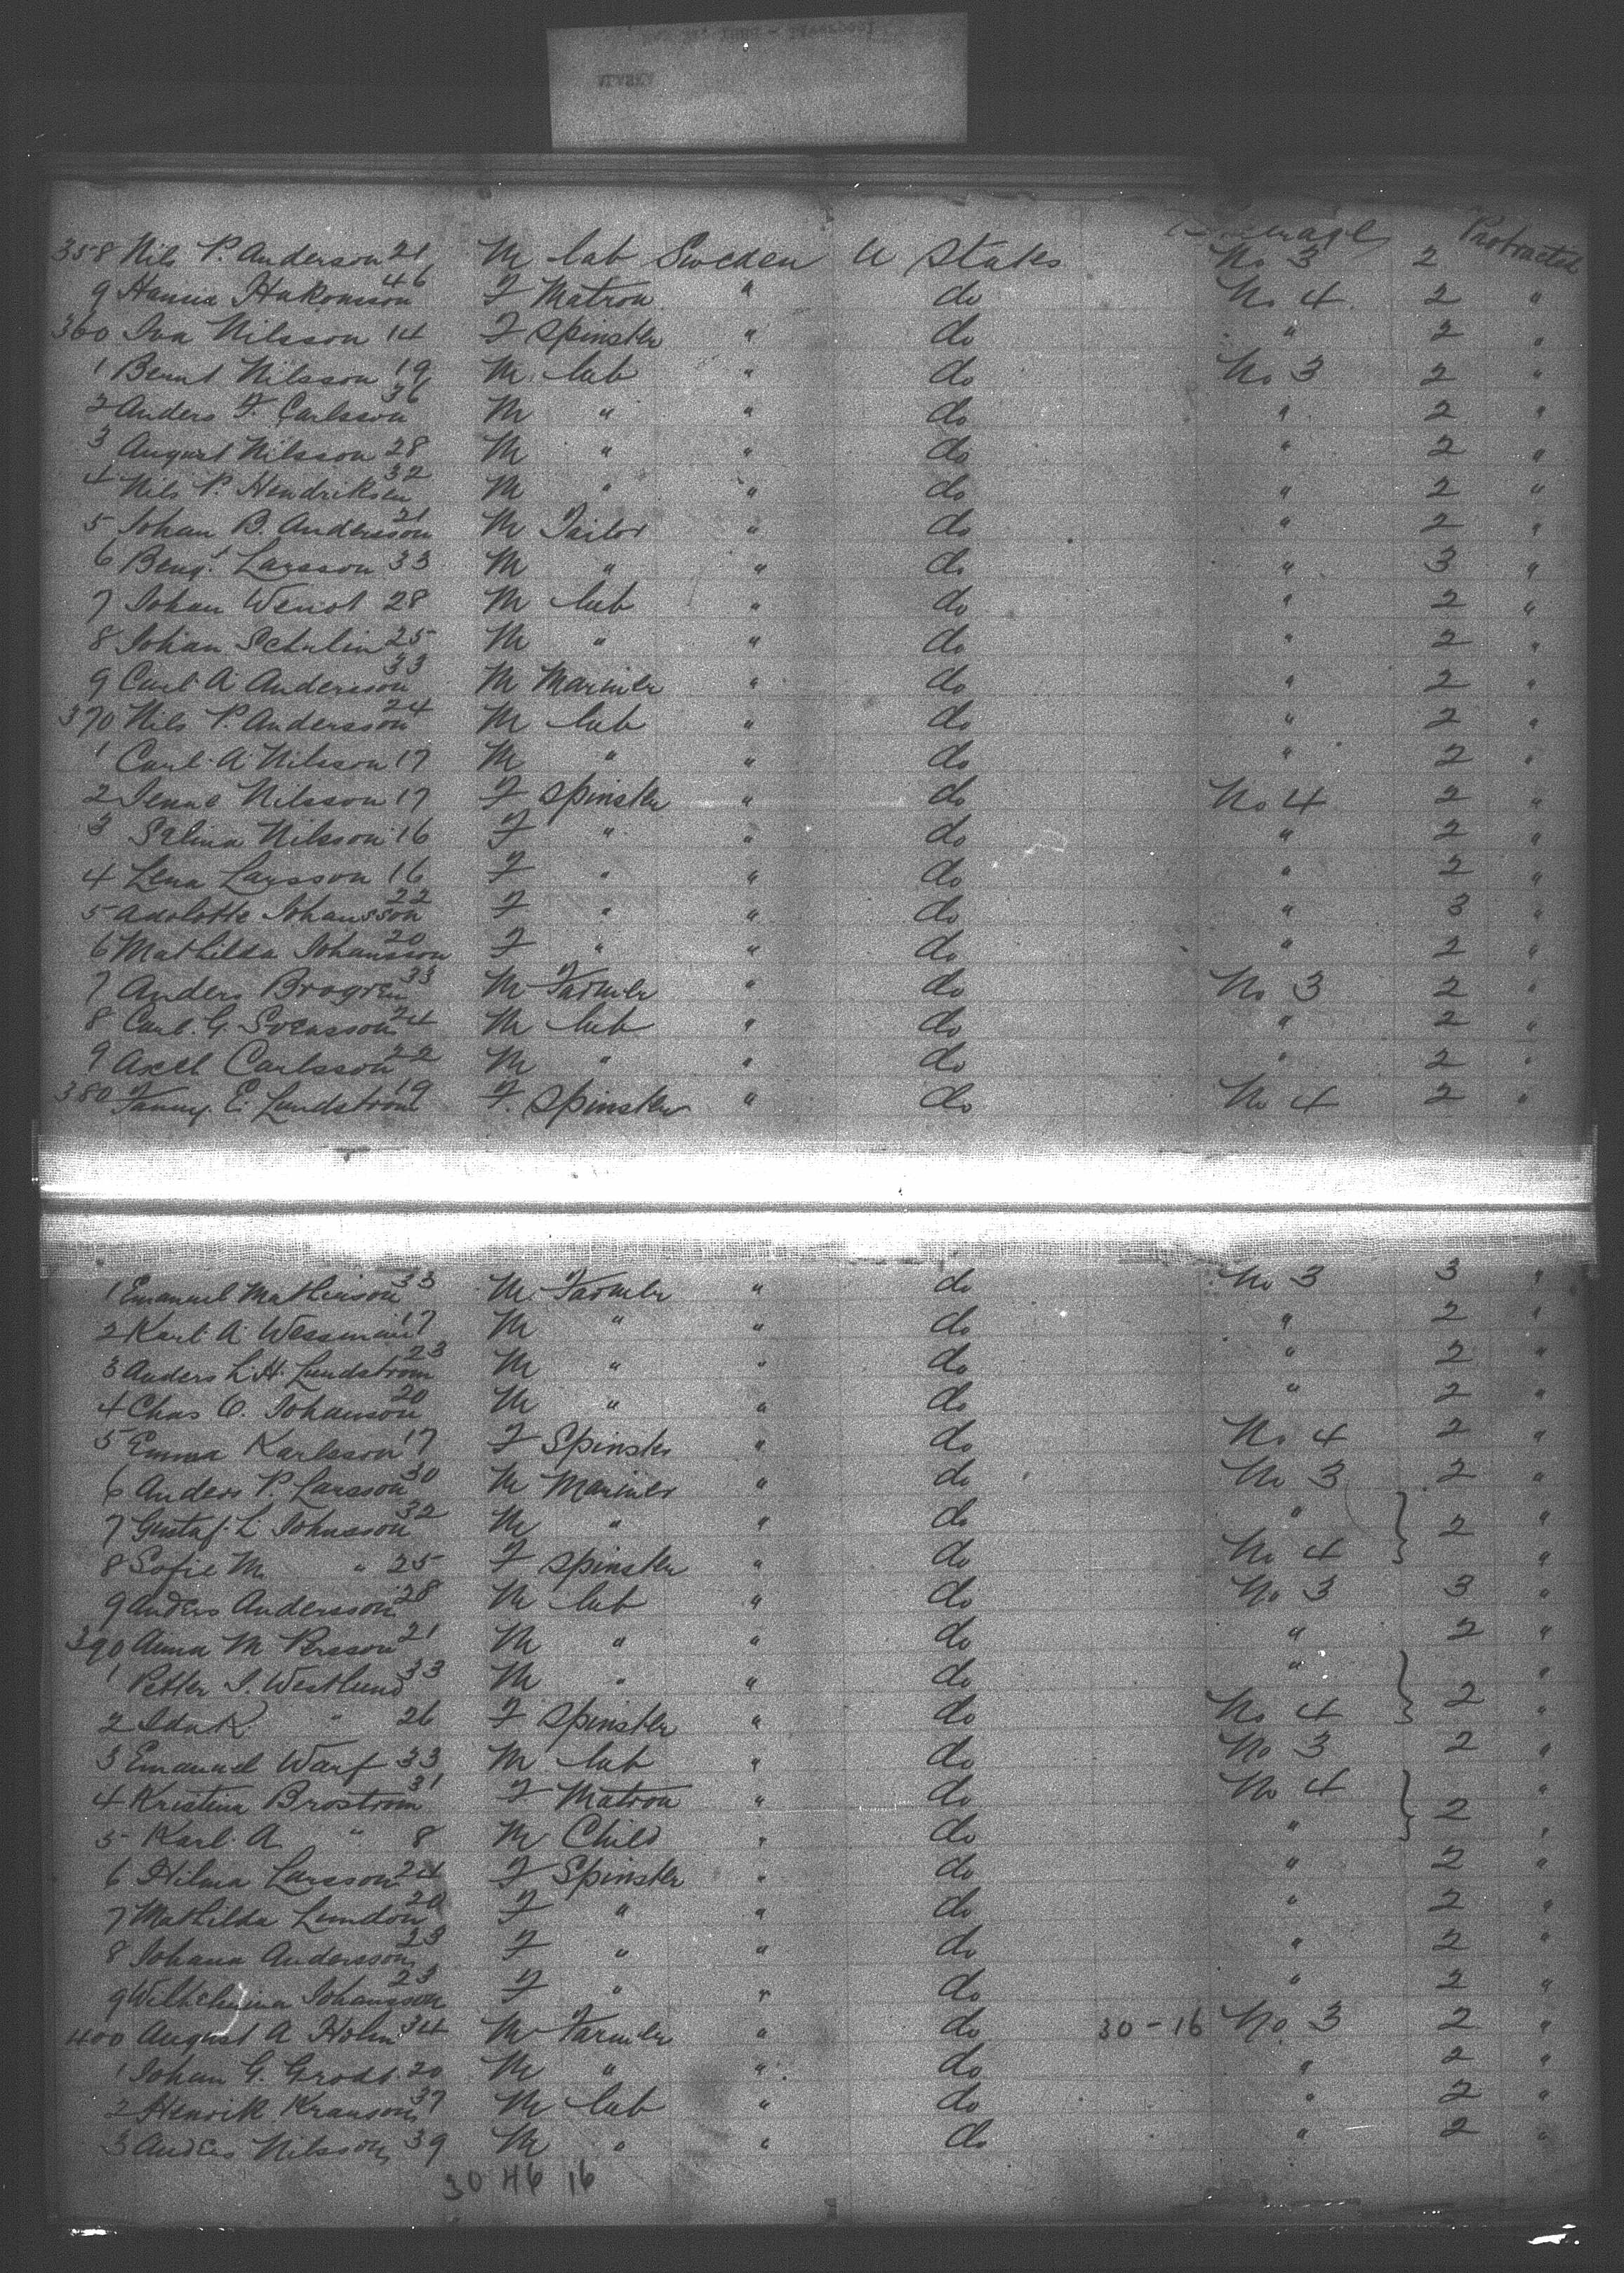 Protracted
358 Nils P. Anderson 21 M lab Sweden U States No 3 2
9 Hakonsson 46 F Matron " do No 4 2 "
360 Iva Nilsson 14 F Spinster " do " 2 "
1 Bernt Nilsson 19 M lab " do No 3 2 "
2 Anders F. Carlsson 36 M " " do " 2 "
3 August Nilsson 28 M " " do " 2 "
4 Nils P. Hendriksen 32 M " " do " 2 "
5 Johan B. Andersson 21 M Tailor " do " 2 "
6 Bengt Larsson 33 M " " do " 3 "
7 Johan 28 M lab " do " 2 "
8 Johan Schulin 25 M " " do " 2 "
9 Carl A Andersson 33 M Mariner " do " 2 "
370 Nils P. Andersson 24 M lab " do " 2 "
1 Carl A Nilsson 17 M " " do " 2 "
2 Nilsson 17 F Spinster " do No 4 2 "
3 Selina Nilsson 16 F " " do " 2 "
4 Lena Larsson 16 F " " do " 2 "
5 Johansson 22 F " " do " 3 "
6 Mathilda Johansson 20 F " " do " 2 "
7 Anders Brogren 33 M Farmer " do No 3 2 "
8 Carl G Svensson 24 M lab " do " 2 "
9 Axel Carlsson 22 M " " do " 2 "
380 Fanny E. Lundstrom 19 F. Spinster " do No 4 2 "
1 Emanuel Mathisson 33 M. Farmer " do No 3 3 "
2 Karl A Wessman 17 M " " do " 2 "
3 Anders L. H. Lundstrom 23 M " " do " 2 "
4 Chas O. Johanson 20 M " " do " 2 "
5 Emma Karlsson 17 F Spinster " do No 4 2 "
6 Anders P. Larsson 30 M Mariner " do No 3 2 "
7 Gustaf L Johnsson 32 M " " do " 2 "
8 Sofie M " 25 F Spinster " do No 4 "
9 Anders Andersson 28 M lab " do No 3 3 "
390 Anna M Persson 21 M " " do " 2 "
1 Petter J. Westlund 33 M " " do " 2 "
2 Ida K " 26 F Spinster " do No 4 "
3 Emanuel Warf 33 M lab " do No 3 2 "
4 Kristina Brostrom 31 F Matron " do No 4 2 "
5 Karl A " 8 M Child " do " "
6 Hilma Larsson 24 F Spinster " do " 2 "
7 Mathilda 20 F " " do " 2 "
8 Johana Andersson 23 F " " do " 2 "
9 Wilhelmina Johansson 23 F " " do " 2 "
400 August A Holm 34 M Farmer " do 30-16 No. 3 2 "
1 Johan G. 20 M " " do " 2 "
2 Henrik 37 M lab " do " 2 "
3 Anders Nilsson 39 M " " do " 2 "
30 46 16